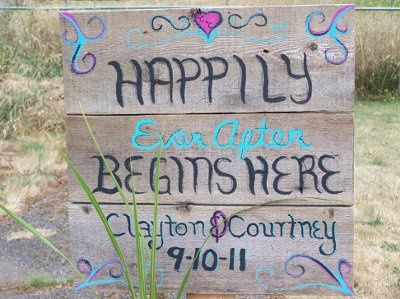 HAPPILY
Ever After
BEGINS HERE
Clayton & Courtney
9-10-11